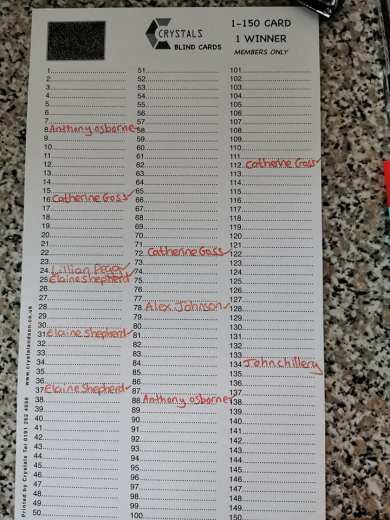 CRYSTALS
BLIND CARDS
1-150 CARD
1 WINNER
MEMBERS ONLY
1
2
3
4
5
6
7
8 Anthony osborne
9
10
11
12
13
14
15
16 Catherine Goss
17
18
19
20
21
22
23
24 Lillian
25 Elaine Shepherd
26
27
28
29
30
31 Elaine Shepherd
32
33
34
35
36
37 Elaine Shepherd
38
39
40
41
42
43
44
45
46
47
48
49
50
51
52
53
54
55
56
57
58
59
60
61
62
63
64
65
66
67
68
69
70
71
72 Catherine Goss
73
74
75
76
77
78 Alex Johnson
79
80
81
82
83
84
85
86
87
88 Anthony osborne
89
90
91
92
93
94
95
96
97
98
99
100
101
102
103
104
105
106
107
108
109
110
111
112 Catherine Goss
113
114
115
116
117
118
119
120
121
122
123
124
125
126
127
128
129
130
131
132
133
134 John chillery
135
136
137
138
139
140
141
142
143
144
145
146
147
148
149
150
Printed by Crystals Tel 0191 252 4838